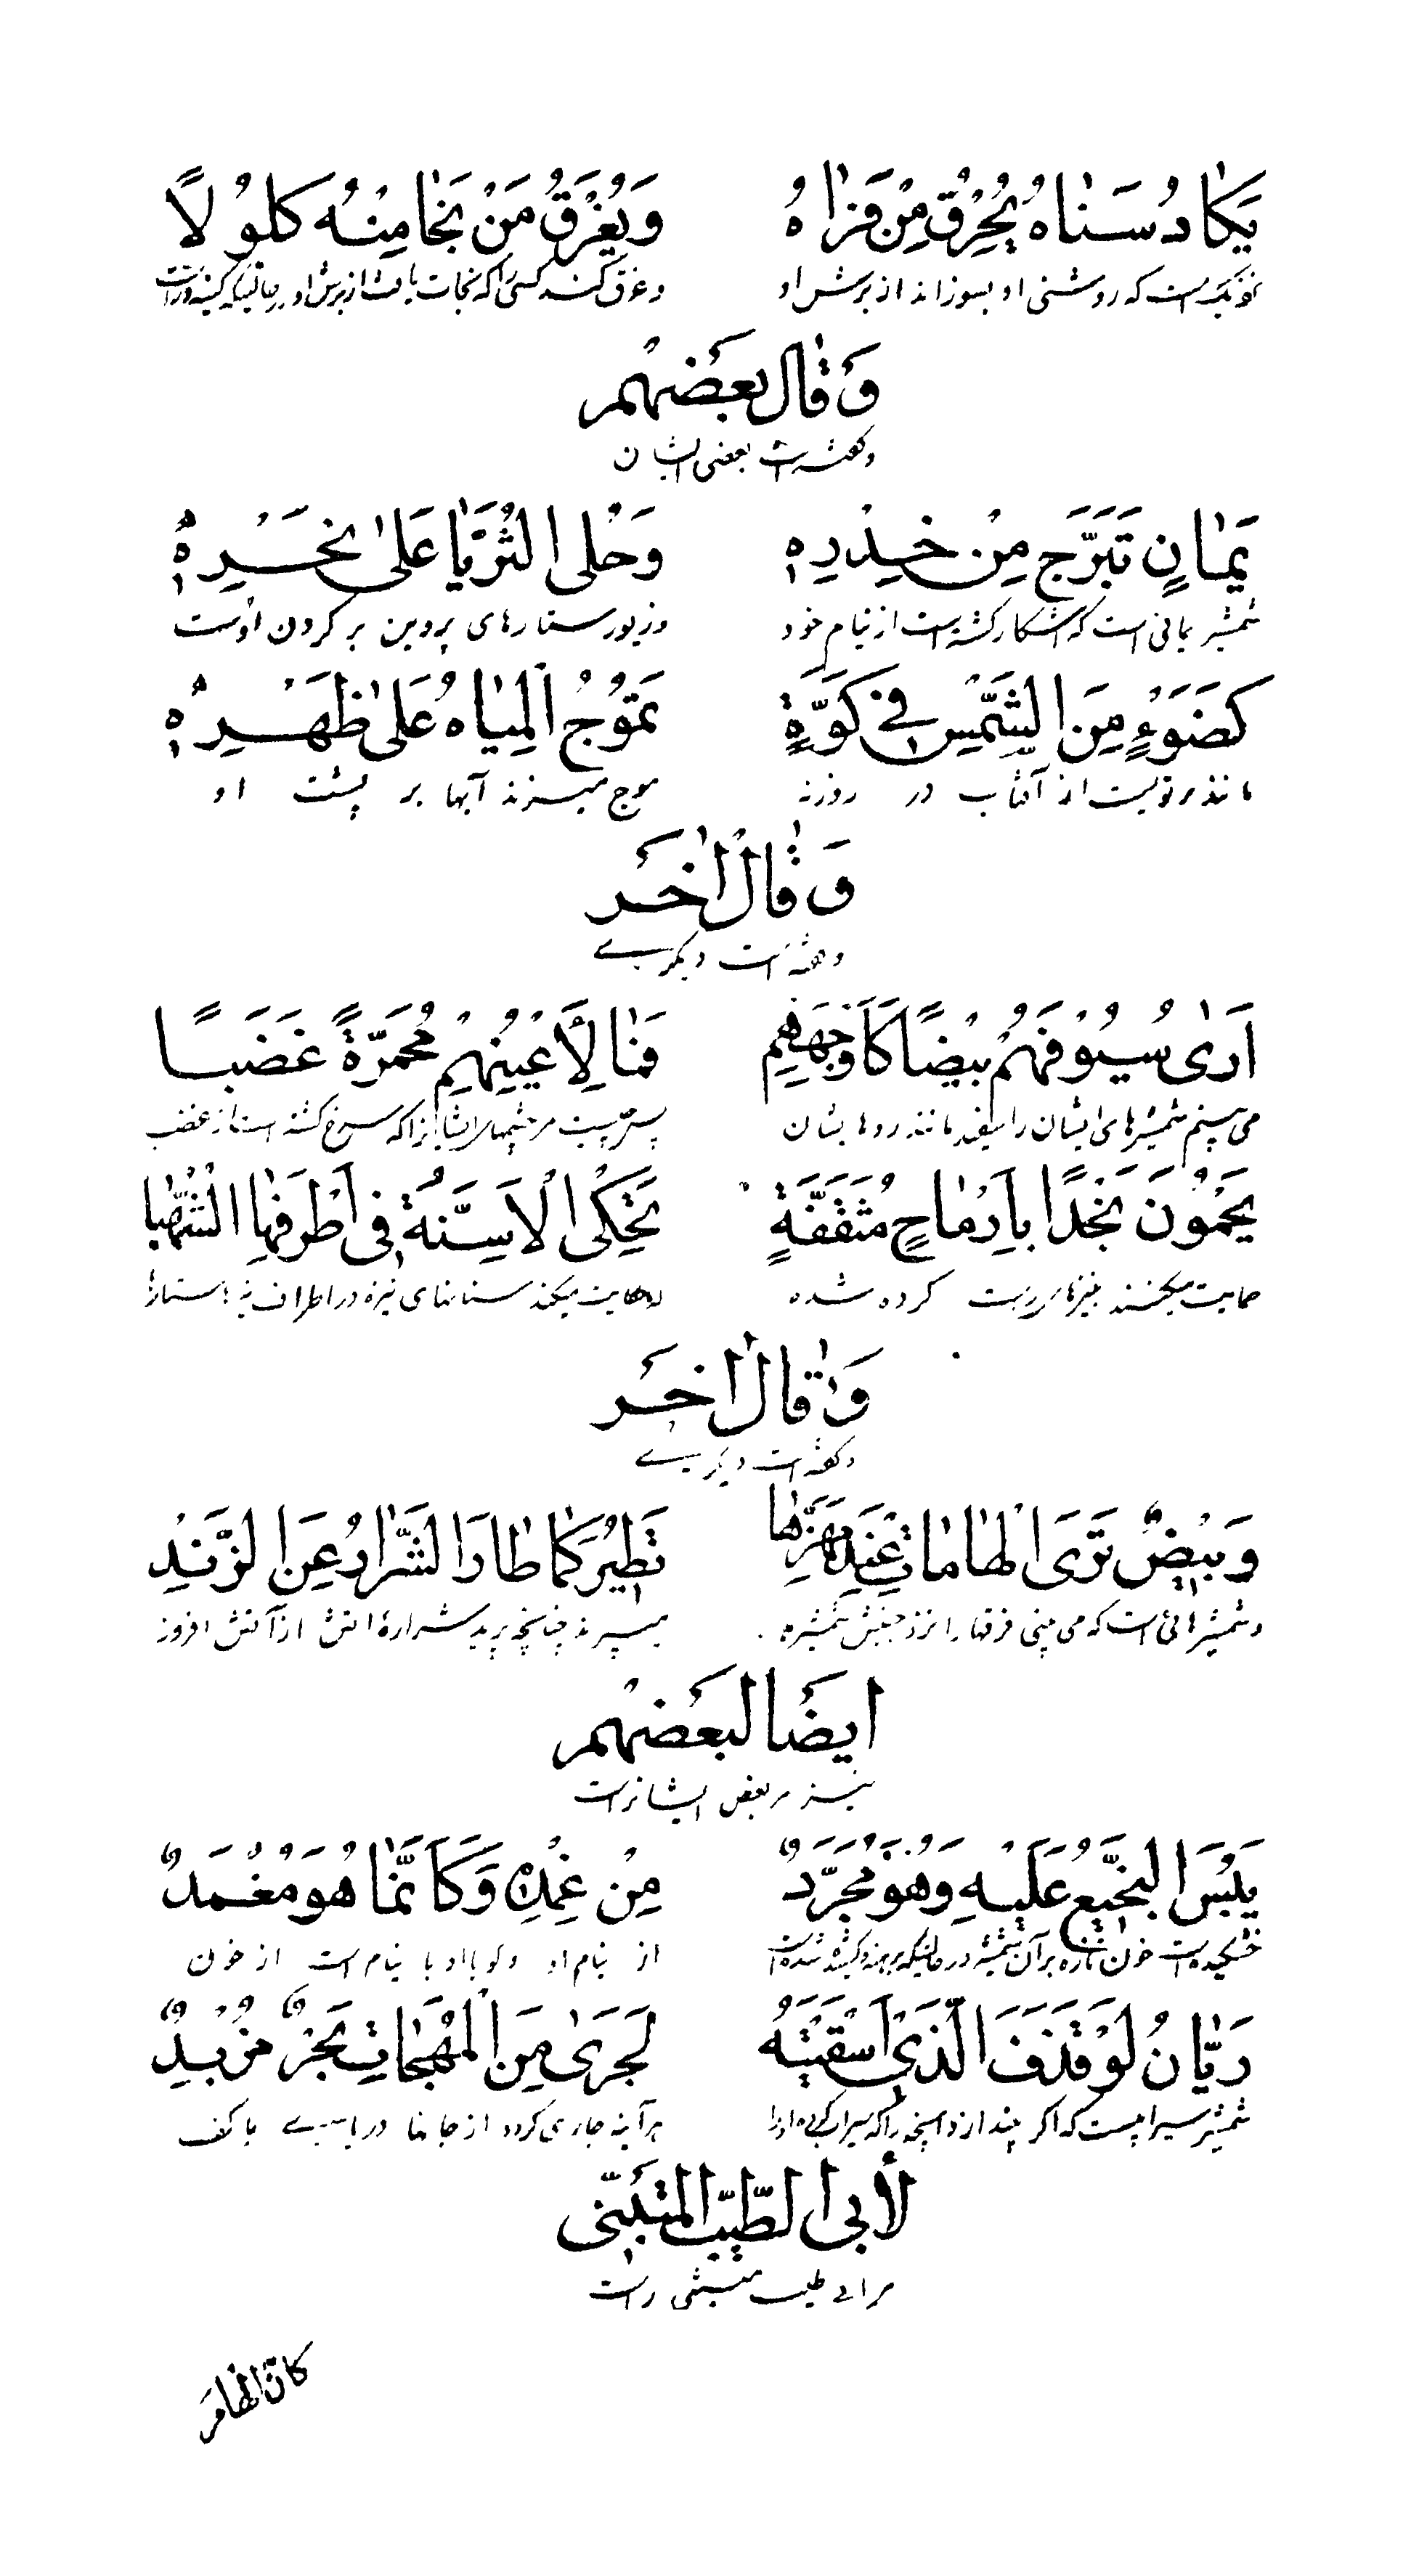 يَكَادُ سَنَاهُ يُحْرِقُ مِنْ فَرَاهُ وَيُغْرِقُ مَنْ نَجَا مِنْهُ كُلُولًا
نزدیکست که روشنی او بسوزاند از برش او و غرق کند کسی را که نجات یافت از برش او
وَقَالَ بَعْضُهُمْ
و گفته است بعضی ایشان
يَمَانٍ تَبَرَّجَ مِنْ خِدْرِهِ وَحُلِى الثُّرَيَّا عَلَىٰ نَحْرِهِ
شمشیر یمانی است که آشکار گشته است از نیام خود و زیور ستارهای پروین بر گردن اوست
كَضَوْءٍ مِنَ الشَّمْسِ فِي كَوَّةٍ تَمُوجُ الْمِيَاهُ عَلَىٰ ظَهْرِهِ
مانند پرتویست از آفتاب در روزنه موج میزند آبها بر پشت او
وَقَالَ اٰخَر
و گفته است دیگرے
اَرَىٰ سُيُوْفَهُمْ بِيْضًا كَاَوْجُهِهِمِ فَمَا لِأَعْيُنِهِمْ مُحْمَرَّةً غَضَبًا
می بینم شمشیرهای ایشان را سفید مانند روهایشان پس چیست مر چشمهای ایشان را که سرخ گشته است از غضب
يَحْمُوْنَ نَجْدًا بِاَرْمَاحٍ مُثَقَّفَةٍ تَحْكِى الْاَسِنَّةُ فِى اَطْرَافِهَا الشُّهُبَا
حمایت میکنند کرده شده حکایت میکند سنانهای نیزه در اطراف
وَقَالَ اٰخَر
و گفته است دیگرے
وَبِيْضٌ تَرَى الْهَامَاتِ عِنْدَ مَهَزِّهَا تَطِيْرُ كَمَا طَارَ الشَّرَارُ عَنِ الزَّنْدِ
و شمشیرهائی است که می بینی فرقها را نزد جنبش میپرند چنانچه پرید شرارهٔ آتش از آتش افروز
اَيضًا لِبَعْضِهُمْ
نیز مر بعض ایشانراست
يَبُسَ النَّجِيْعُ عَلَيْهِ وَهُوَ مُجَرَّدٌ مِنْ غِمْدِهِ وَكَاَنَّمَا هُوَ مُغْمَدٌ
خشکیده است خون تازه بر آن شمشیر در حالیکه برهنه و کشیده شده است از نیام او و گویا او با نیام است از خون
رَيَّانُ لَوْ قَذَفَ الَّذِىْ اَسْقَيْتَهُ لَجَرَىٰ مِنَ الْمُهَجَاتِ بَحْرٌ مُزْبِدٌ
شمشیر سیرابیست که اگر بیندازد آنچه را که هر آینه جاری گردد از جانها دریا با کف
لأبى الطَّيِّب المتَنَبِّى
مر ابی طیب متنبی راست
كان الهام